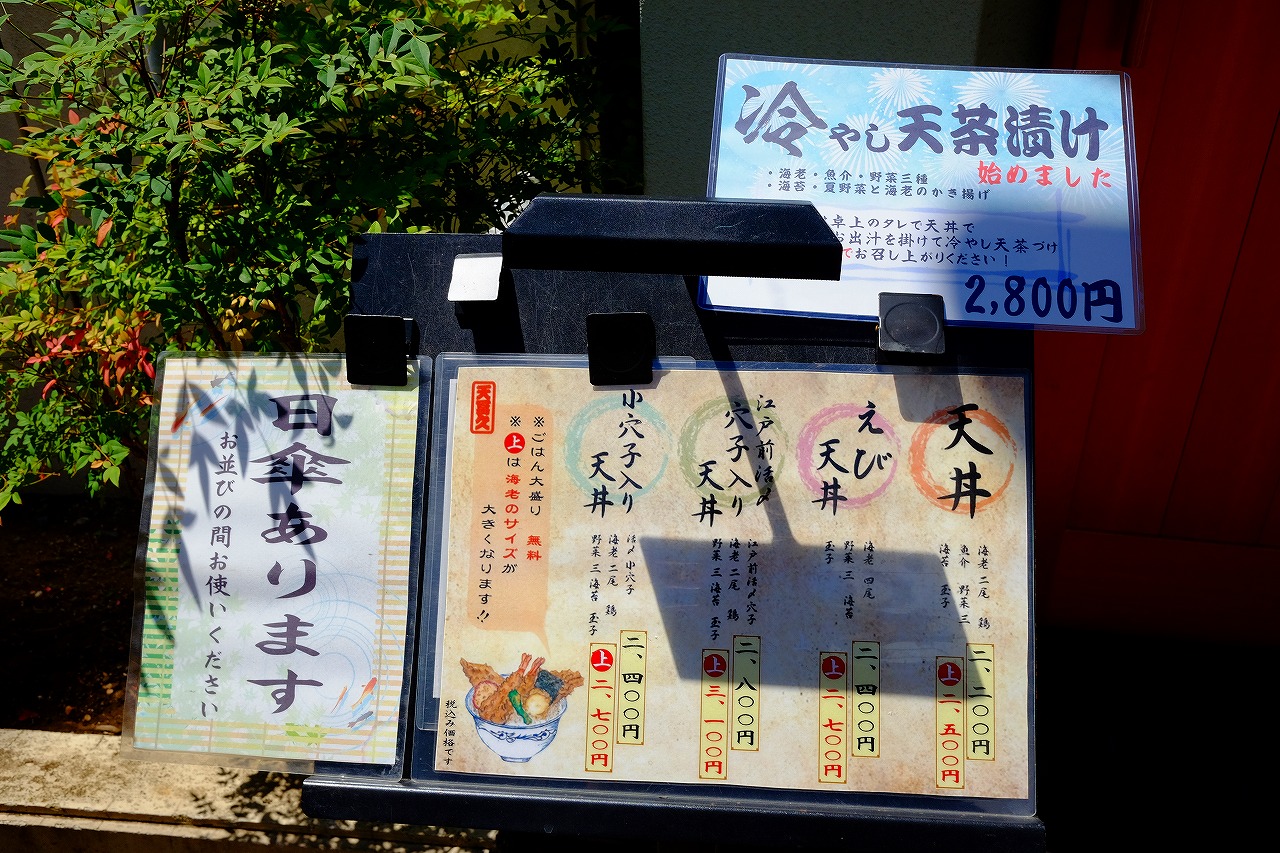 冷やし天茶漬け
始めました
・海老・魚介・野菜三種
・海苔・夏野菜と海老のかき揚げ
卓上のタレで天丼で
お出汁を掛けて冷やし天茶づけ
でお召し上がりください！
2,800円
日傘あります
お並びの間お使いください
天丼
海老 二尾 鶏
魚介 野菜 三
海苔 玉子
二、二〇〇円
上 二、五〇〇円
えび
天丼
海老 四尾
野菜 三 海苔
玉子
二、四〇〇円
上 二、七〇〇円
江戸前活〆
穴子入り
天丼
江戸前活〆穴子
海老 二尾 鶏
野菜 三 海苔 玉子
二、八〇〇円
上 三、一〇〇円
小穴子入り
天丼
活〆 小穴子
海老 二尾 鶏
野菜 三 海苔 玉子
二、四〇〇円
上 二、七〇〇円
※ごはん大盛り 無料
※上は海老のサイズが
大きくなります!!
税込み価格です